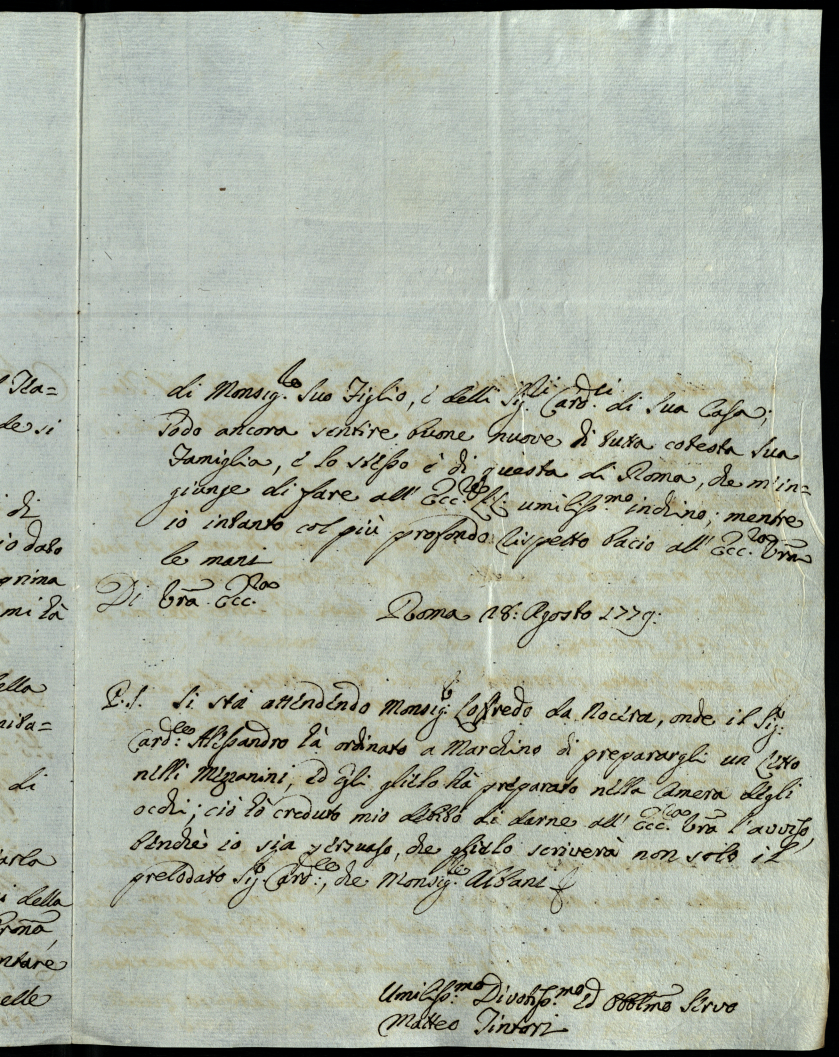 l Ita=
de si
di
io dato
prima
mi hà
ella
nita=
di
iarlo
i della
Proñã,
ntare
elle
di Monsig.re Suo Figlio, e delli Sig.li Card.li di Sua Casa;
Godo ancora sentire buone nuove di tutta cotesta Sua
Famiglia, e lo stesso è di questa di Roma, che m'in=
giunge di fare all' Ecc.za V. umiliss.mo inchino; mentre
io intanto col più profondo rispetto bacio all' Ecc.za Vrã
le mani
Di Vrã Ecc.za
Roma 28: Agosto 1779:
P.S. Si stà attendendo Monsig.r Loffredo da Nocera, onde il Sig.
Card.le Alessandro hà ordinato a Marchino di preparargli un Letto
nelli Mezzanini, ed Egli glielo hà preparato nella Camera degli
occhi; ciò hò creduto mio debito di darne all' Ecc.za Vrã l'avviso,
benchè io sia persuaso, che glielo scriverà non solo il
prelodato Sig. Card.le, che Monsig.re Albani
Umiliss.mo Divotiss.mo ed Obblmõ Servo
Matteo Tintori